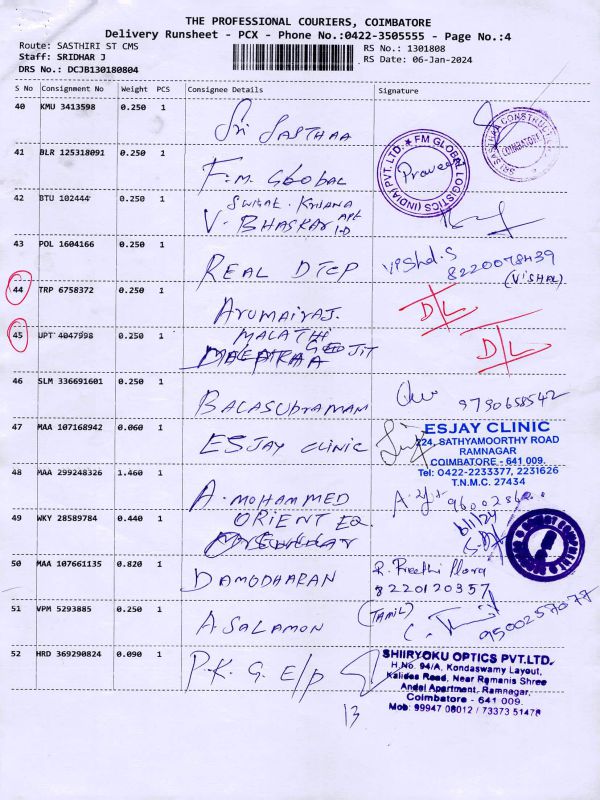 THE PROFESSIONAL COURIERS, COIMBATORE
Delivery Runsheet - PCX - Phone No.:0422-3505555 - Page No.:4
Route: SASTHIRI ST CMS
RS No.: 1301808
Staff: SRIDHAR J
RS Date: 06-Jan-2024
DRS No.: DCJB130180804
S No Consignment No Weight PCS Consignee Details Signature
40 KMU 3413598 0.250 1 Sri SASTHAA
SRI SASTHAA CONSTRUCTION COIMBATORE
41 BLR 125318091 0.250 1 F.M. GLOBAL
FM GLOBAL LOGISTICS (INDIA) PVT. LTD. Praveen
42 BTU 102444 0.250 1 V. BHASKAR Apt
43 POL 1604166 0.250 1 REAL DTCP Vishal.S
8220078439
(VISHAL)
44 TRP 6758372 0.250 1 ARUMAIRAJ. D/L
45 UPT 4047998 0.250 1 MALATHI
GEOJIT D/L
46 SLM 336691601 0.250 1 BALASUBRAMANI 9790658542
47 MAA 107168942 0.060 1 ESJAY CLINIC
ESJAY CLINIC
224, SATHYAMOORTHY ROAD
RAMNAGAR
COIMBATORE - 641 009.
Tel: 0422-2233377, 2231626
T.N.M.C. 27434
48 MAA 299248326 1.460 1 A. MOHAMMED
49 WKY 28589784 0.440 1 ORIENT EQ.
6/1/24
50 MAA 107661135 0.820 1 DAMODHARAN R. Preethi
8220120357
51 VPM 5293885 0.250 1 A. SALAMON (TAMIL)
9500257077
52 HRD 369290824 0.090 1 P.K.G. E/p
13
SHIIRYOKU OPTICS PVT.LTD.
H.No. 94/A, Kondaswamy Layout,
Kalidas Road, Near Ramanis Shree
Andal Apartment, Ramnagar,
Coimbatore - 641 009.
Mob: 99947 08012 / 73373 51478